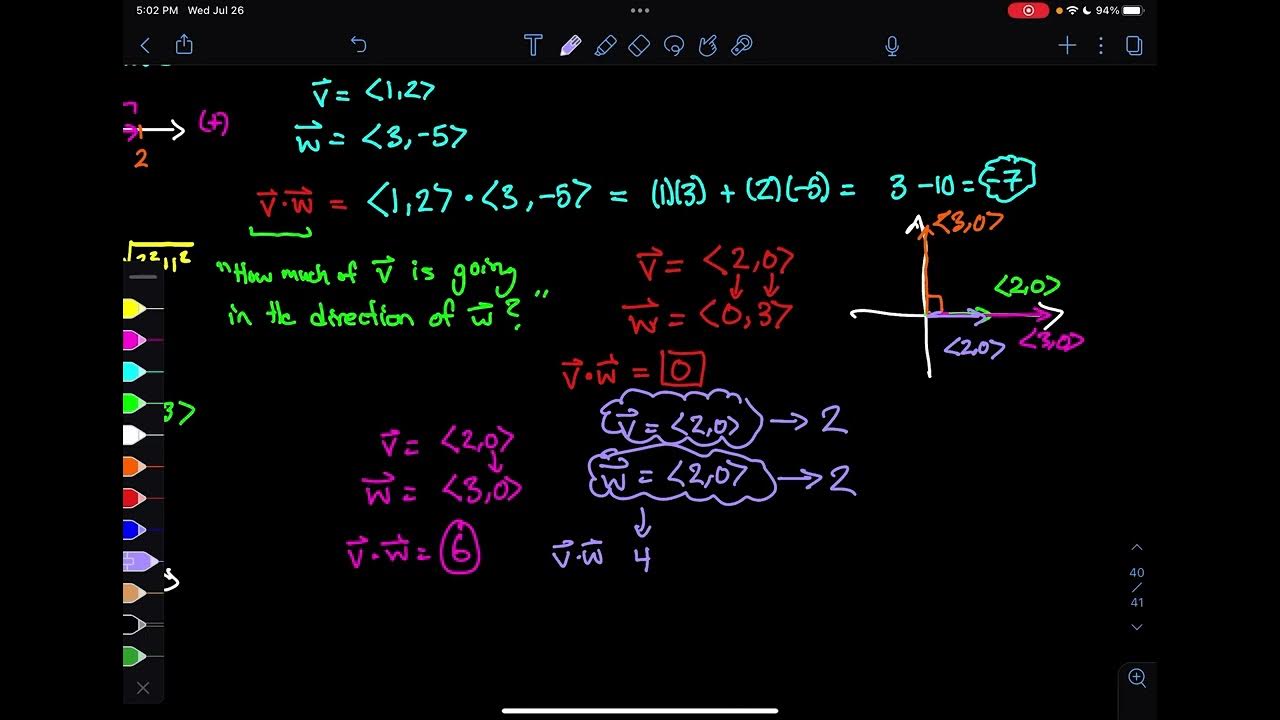 5:02 PM Wed Jul 26
94%
v⃗ = <1,2>
(+)
w⃗ = <3,-5>
2
v⃗·w⃗ = <1,2>·<3,-5> = (1)(3) + (2)(-5) = 3 -10 = -7
<3,0>
"How much of v⃗ is going
in the direction of w⃗?"
v⃗ = <2,0>
w⃗ = <0,3>
<2,0>
<2,0>
<3,0>
v⃗·w⃗ = 0
3>
v⃗ = <2,0> → 2
w⃗ = <2,0> → 2
v⃗·w⃗ 4
v⃗ = <2,0>
w⃗ = <3,0>
v⃗·w⃗ = 6
40
/
41